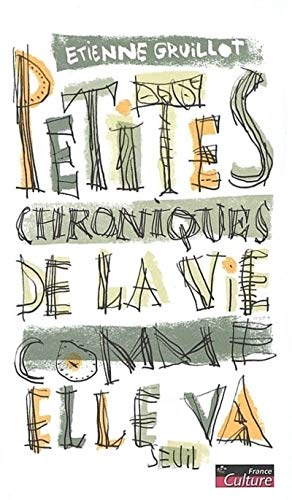 ETIENNE GRUILLOT
PETITES
CHRONIQUES
DE LA VIE
COMME
ELLE VA
SEUIL
France
Culture